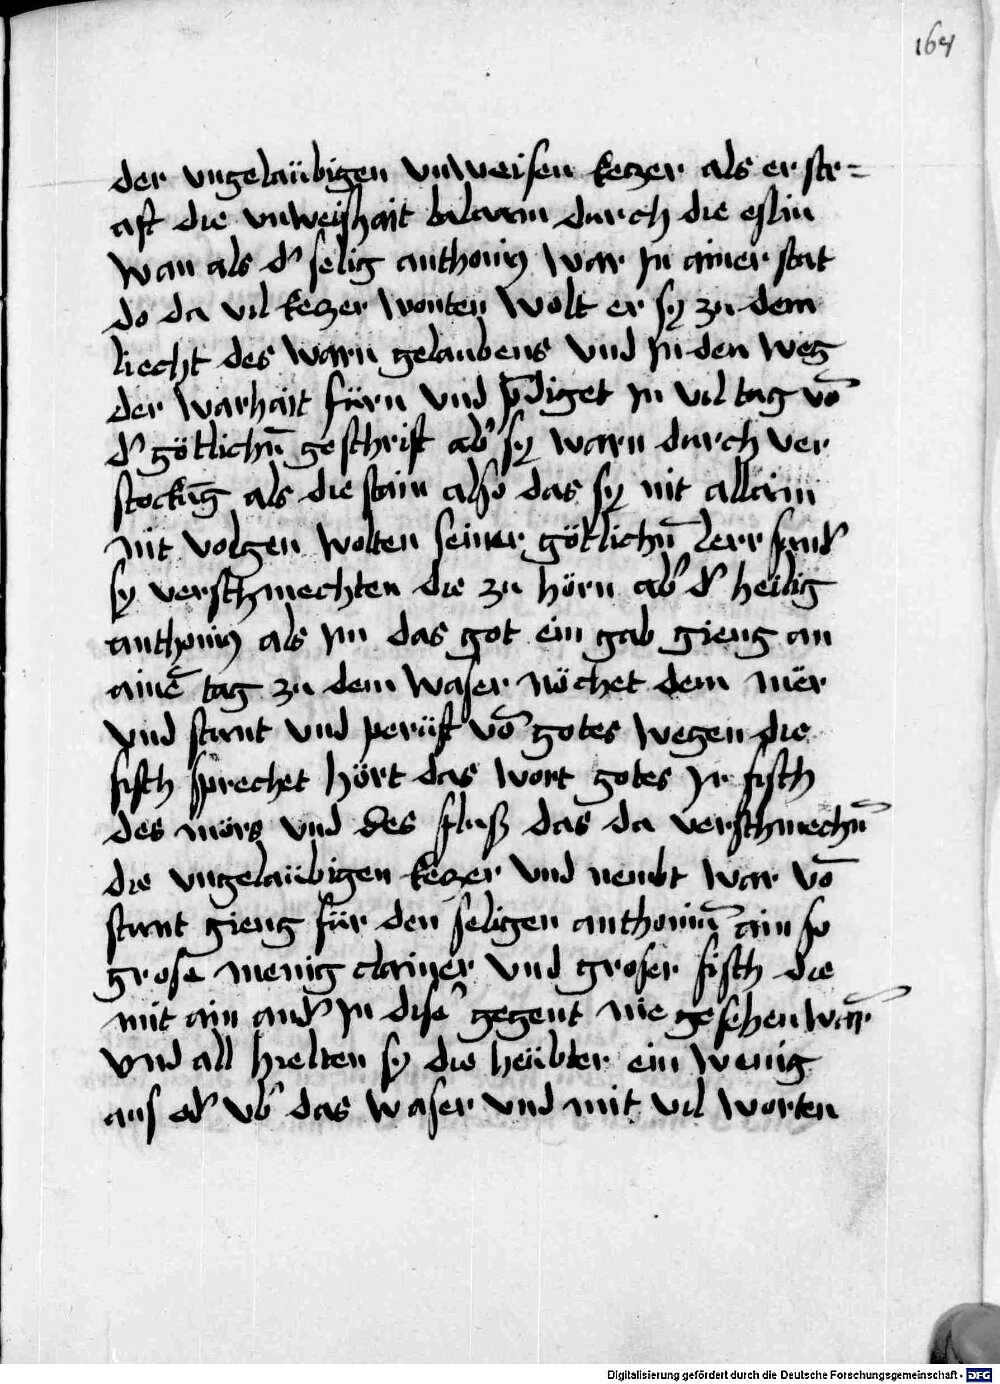 164
der vngelaübigen vnweisen keczer als er str=
aft die vnweishait balaam durch die eslin
wan als d' selig anthoniꝯ war jn ainer stat
do da vil keczer wonten wolt er sy zu dem
liecht des warn gelaubens vnd jn den weg
der warhait fürn vnd p̄diget jn vil tag vō
d' götlichn̄ geschrift ab' sy warn durch ver
stockūg als die stain also das sy nit allain
nit volgen wolten seiner götlichn̄ lerr sund'
sy verschmechten die zu hörn ab' d' heilig
anthoniꝯ als jm das got ein gab gieng an
ainē tag zu dem waser nöchet dem mër
vnd stunt vnd perüft vō gotes wegen die
fisch sprechet hört das wort gotes jr fisch
des mörs vnd des fluß das da verschmechn̄
die vngelaübigen keczer vnd nembt war vō
stunt gieng für den seligen anthoniū ain so
grose menig clainer vnd groser fisch die
mit ain and' jn dise' gegent nie gesehen warn̄
vnd all hielten sy die heübter ein wenig
aus od' vb' das waser vnd mit vil worten
Digitalisierung gefördert durch die Deutsche Forschungsgemeinschaft - DFG